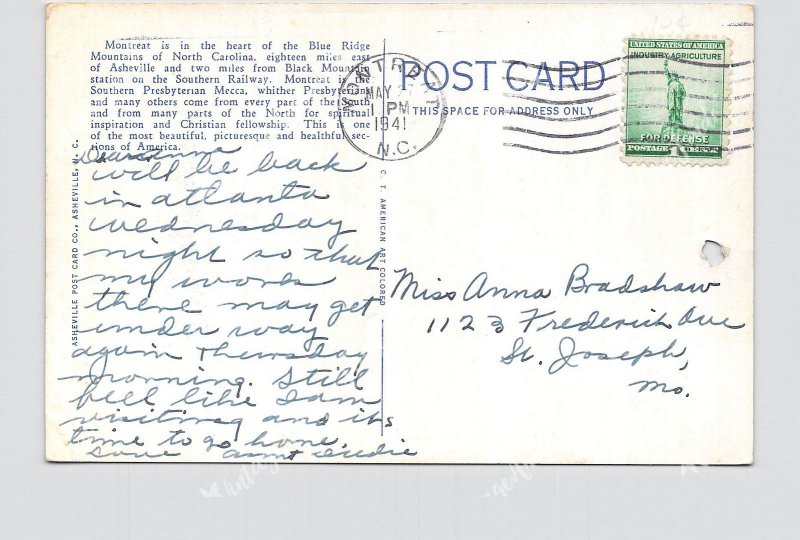 Montreat is in the heart of the Blue Ridge
Mountains of North Carolina, eighteen miles east
of Asheville and two miles from Black Mountain
station on the Southern Railway. Montreat is the
Southern Presbyterian Mecca, whither Presbyterian
and many others come from every part of the South
and from many parts of the North for spiritual
inspiration and Christian fellowship. This is one
of the most beautiful, picturesque and healthful sec-
tions of America.
Dear Anna
will be back
in atlanta
wednesday
night so that
my words
there may get
under way
again Thursday
morning. Still
feel like I am
visiting and its
time to go home.
Love Aunt
ASHEVILLE POST CARD CO., ASHEVILLE, N. C.
C. T. AMERICAN ART COLORED
MONTREAT
MAY
1 PM
1941
N.C.
POST CARD
THIS SPACE FOR ADDRESS ONLY
UNITED STATES OF AMERICA
INDUSTRY·AGRICULTURE
FOR DEFENSE
POSTAGE
Miss Anna Bradshaw
1123 Frederick Ave
St. Joseph,
Mo.